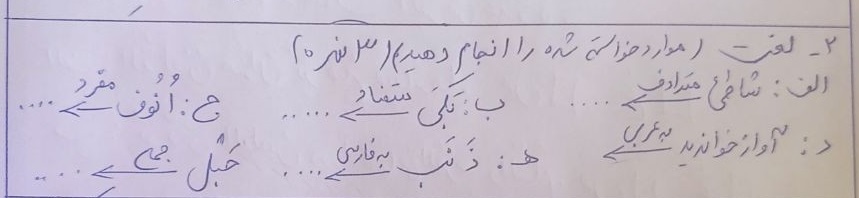 ۲- لغت (موارد خواسته شده را انجام دهید) (۳ نمره)
الف: شاطئ مترادف ..... ب: بَکَی متضاد ..... ج: اُنُوف مفرد ....
د: آواز خواندید به عربی هـ: ذَنَب به فارسی .... حَبْل جمع .....